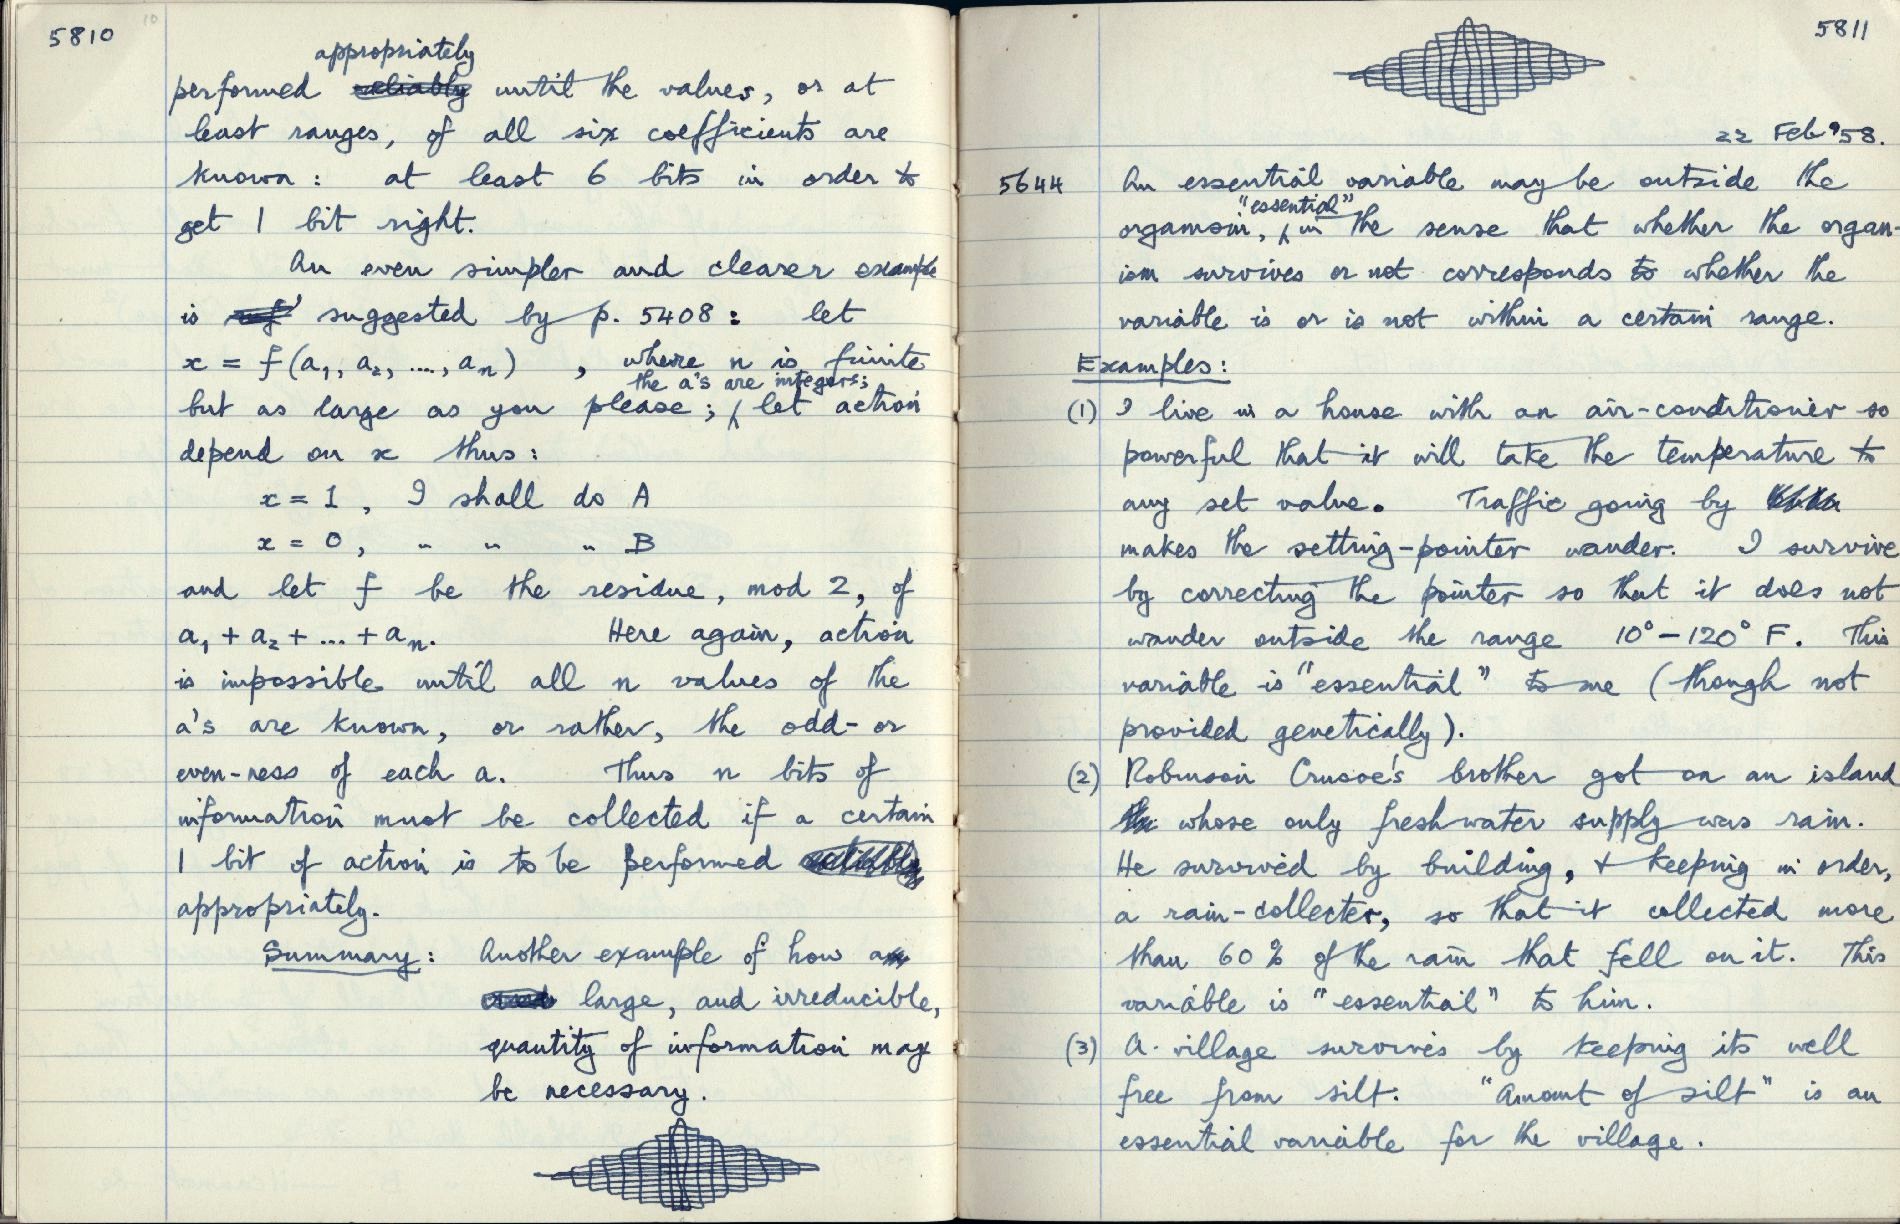 5810
10
appropriately
performed reliably until the values, or at
least ranges, of all six coefficients are
known: at least 6 bits in order to
get 1 bit right.
An even simpler and clearer example
is suggested by p. 5408: let
x = f(a₁, a₂, ...., aₙ) , where n is finite
the a's are integers;
but as large as you please; let action
depend on x thus:
x = 1, I shall do A
x = 0, " " " B
and let f be the residue, mod 2, of
a₁ + a₂ + ... + aₙ. Here again, action
is impossible until all n values of the
a's are known, or rather, the odd- or
even-ness of each a. Thus n bits of
information must be collected if a certain
1 bit of action is to be performed
appropriately.
Summary: Another example of how a
large, and irreducible,
quantity of information may
be necessary.
5811
22 Feb '58.
5644 An essential variable may be outside the
"essential"
organism, in the sense that whether the organ-
ism survives or not corresponds to whether the
variable is or is not within a certain range.
Examples:
(1) I live in a house with an air-conditioner so
powerful that it will take the temperature to
any set value. Traffic going by
makes the setting-pointer wander. I survive
by correcting the pointer so that it does not
wander outside the range 10°-120° F. This
variable is "essential" to me (though not
provided genetically).
(2) Robinson Crusoe's brother got on an island
whose only freshwater supply was rain.
He survived by building, & keeping in order,
a rain-collecter, so that it collected more
than 60% of the rain that fell on it. This
variable is "essential" to him.
(3) A village survives by keeping its well
free from silt. "Amount of silt" is an
essential variable for the village.